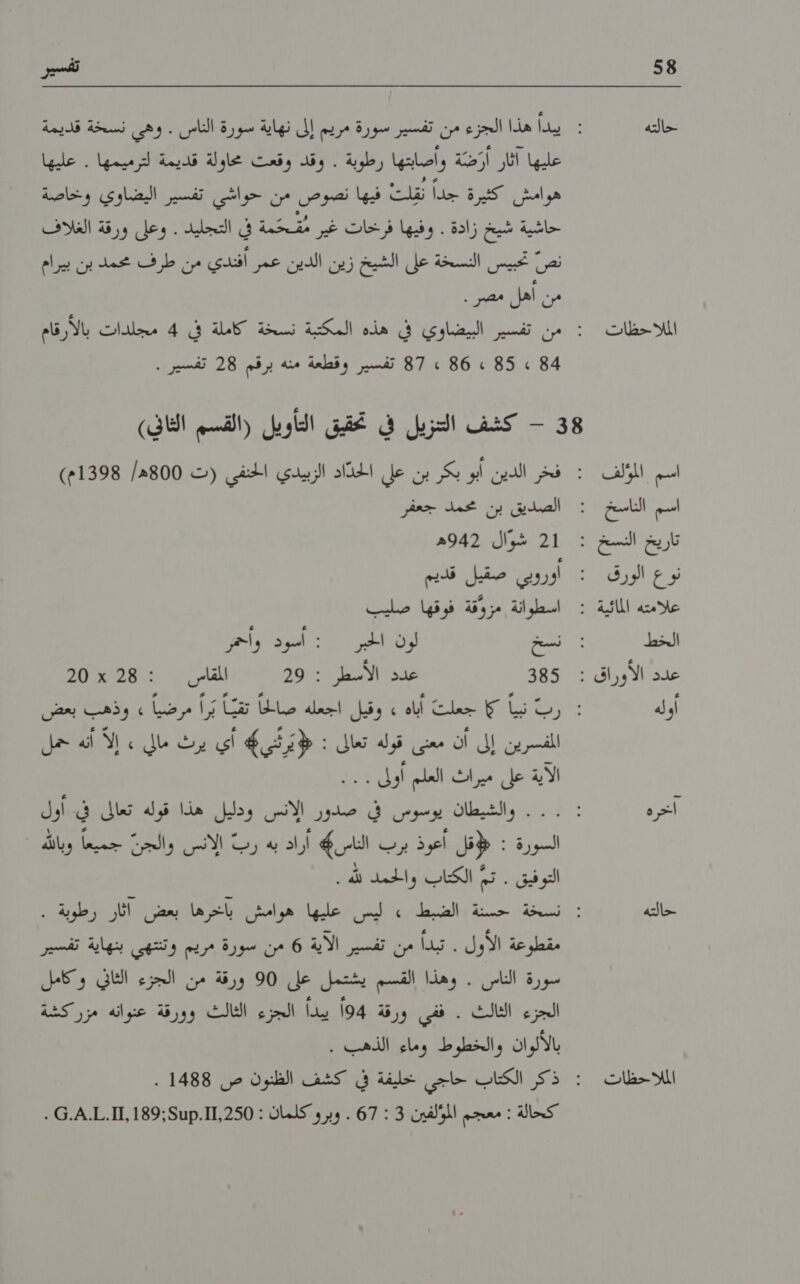 58 تفسير
حالته : يبدأ هذا الجزء من تفسير سورة مريم إلى نهاية سورة الناس . وهي نسخة قديمة
عليها آثار أرَضَة وأصابتها رطوبة . وقد وقعت محاولة قديمة لترميمها . عليها
هوامش كثيرة جداً نُقِلتْ فيها نصوص من حواشي تفسير البيضاوي وخاصة
حاشية شيخ زادة . وفيها فرخات غير مُقْحَمة في التجليد . وعلى ورقة الغلاف
نصّ تحبيس النسخة على الشيخ زين الدين عمر أفندي من طرف محمد بن بيرام
من أهل مصر .
الملاحظات : من تفسير البيضاوي في هذه المكتبة نسخة كاملة في 4 مجلدات بالأرقام
84 ، 85 ، 86 ، 87 تفسير وقطعة منه برقم 28 تفسير .
38 – كشف التنزيل في تحقيق التأويل (القسم الثاني)
اسم المؤلف : فخر الدين أبو بكر بن علي الحدّاد الزبيدي الحنفي (ت 800ه/ 1398م)
اسم الناسخ : الصديق بن محمد جعفر
تاريخ النسخ : 21 شوّال 942ه
نوع الورق : أوروبي صقيل قديم
علامته المائية : اسطوانة مزوّقة فوقها صليب
الخط : نسخ لون الحبر : أسود وأحمر
عدد الأوراق : 385 عدد الأسطر : 29 المقاس : 28 x 20
أوله : ربّ نبياً كما جعلتَ أباه ، وقيل اجعله صالحاً تقيّاً بَراً مرضياً ، وذهب بعض
المفسرين إلى أن معنى قوله تعالى : ﴿يَرثُني﴾ أي يرث مالي ، إلاّ أنه حمل
الآية على ميراث العلم أولى ...
آخره : ... والشيطان يوسوس في صدور الإنس ودليل هذا قوله تعالى في أول
السورة : ﴿قل أعوذ برب الناس﴾ أراد به ربّ الإنس والجنّ جميعاً وبالله
التوفيق . تمّ الكتاب والحمد لله .
حالته : نسخة حسنة الضبط ، ليس عليها هوامش بآخرها بعض آثار رطوبة .
مقطوعة الأول . تبدأ من تفسير الآية 6 من سورة مريم وتنتهي بنهاية تفسير
سورة الناس . وهذا القسم يشتمل على 90 ورقة من الجزء الثاني وكامل
الجزء الثالث . ففي ورقة 94أ يبدأ الجزء الثالث وورقة عنوانه مزركشة
بالألوان والخطوط وماء الذهب .
الملاحظات : ذكر الكتاب حاجي خليفة في كشف الظنون ص 1488 .
كحالة : معجم المؤلفين 3 : 67 . وبروكلمان : G.A.L.II,189;Sup.II,250 .